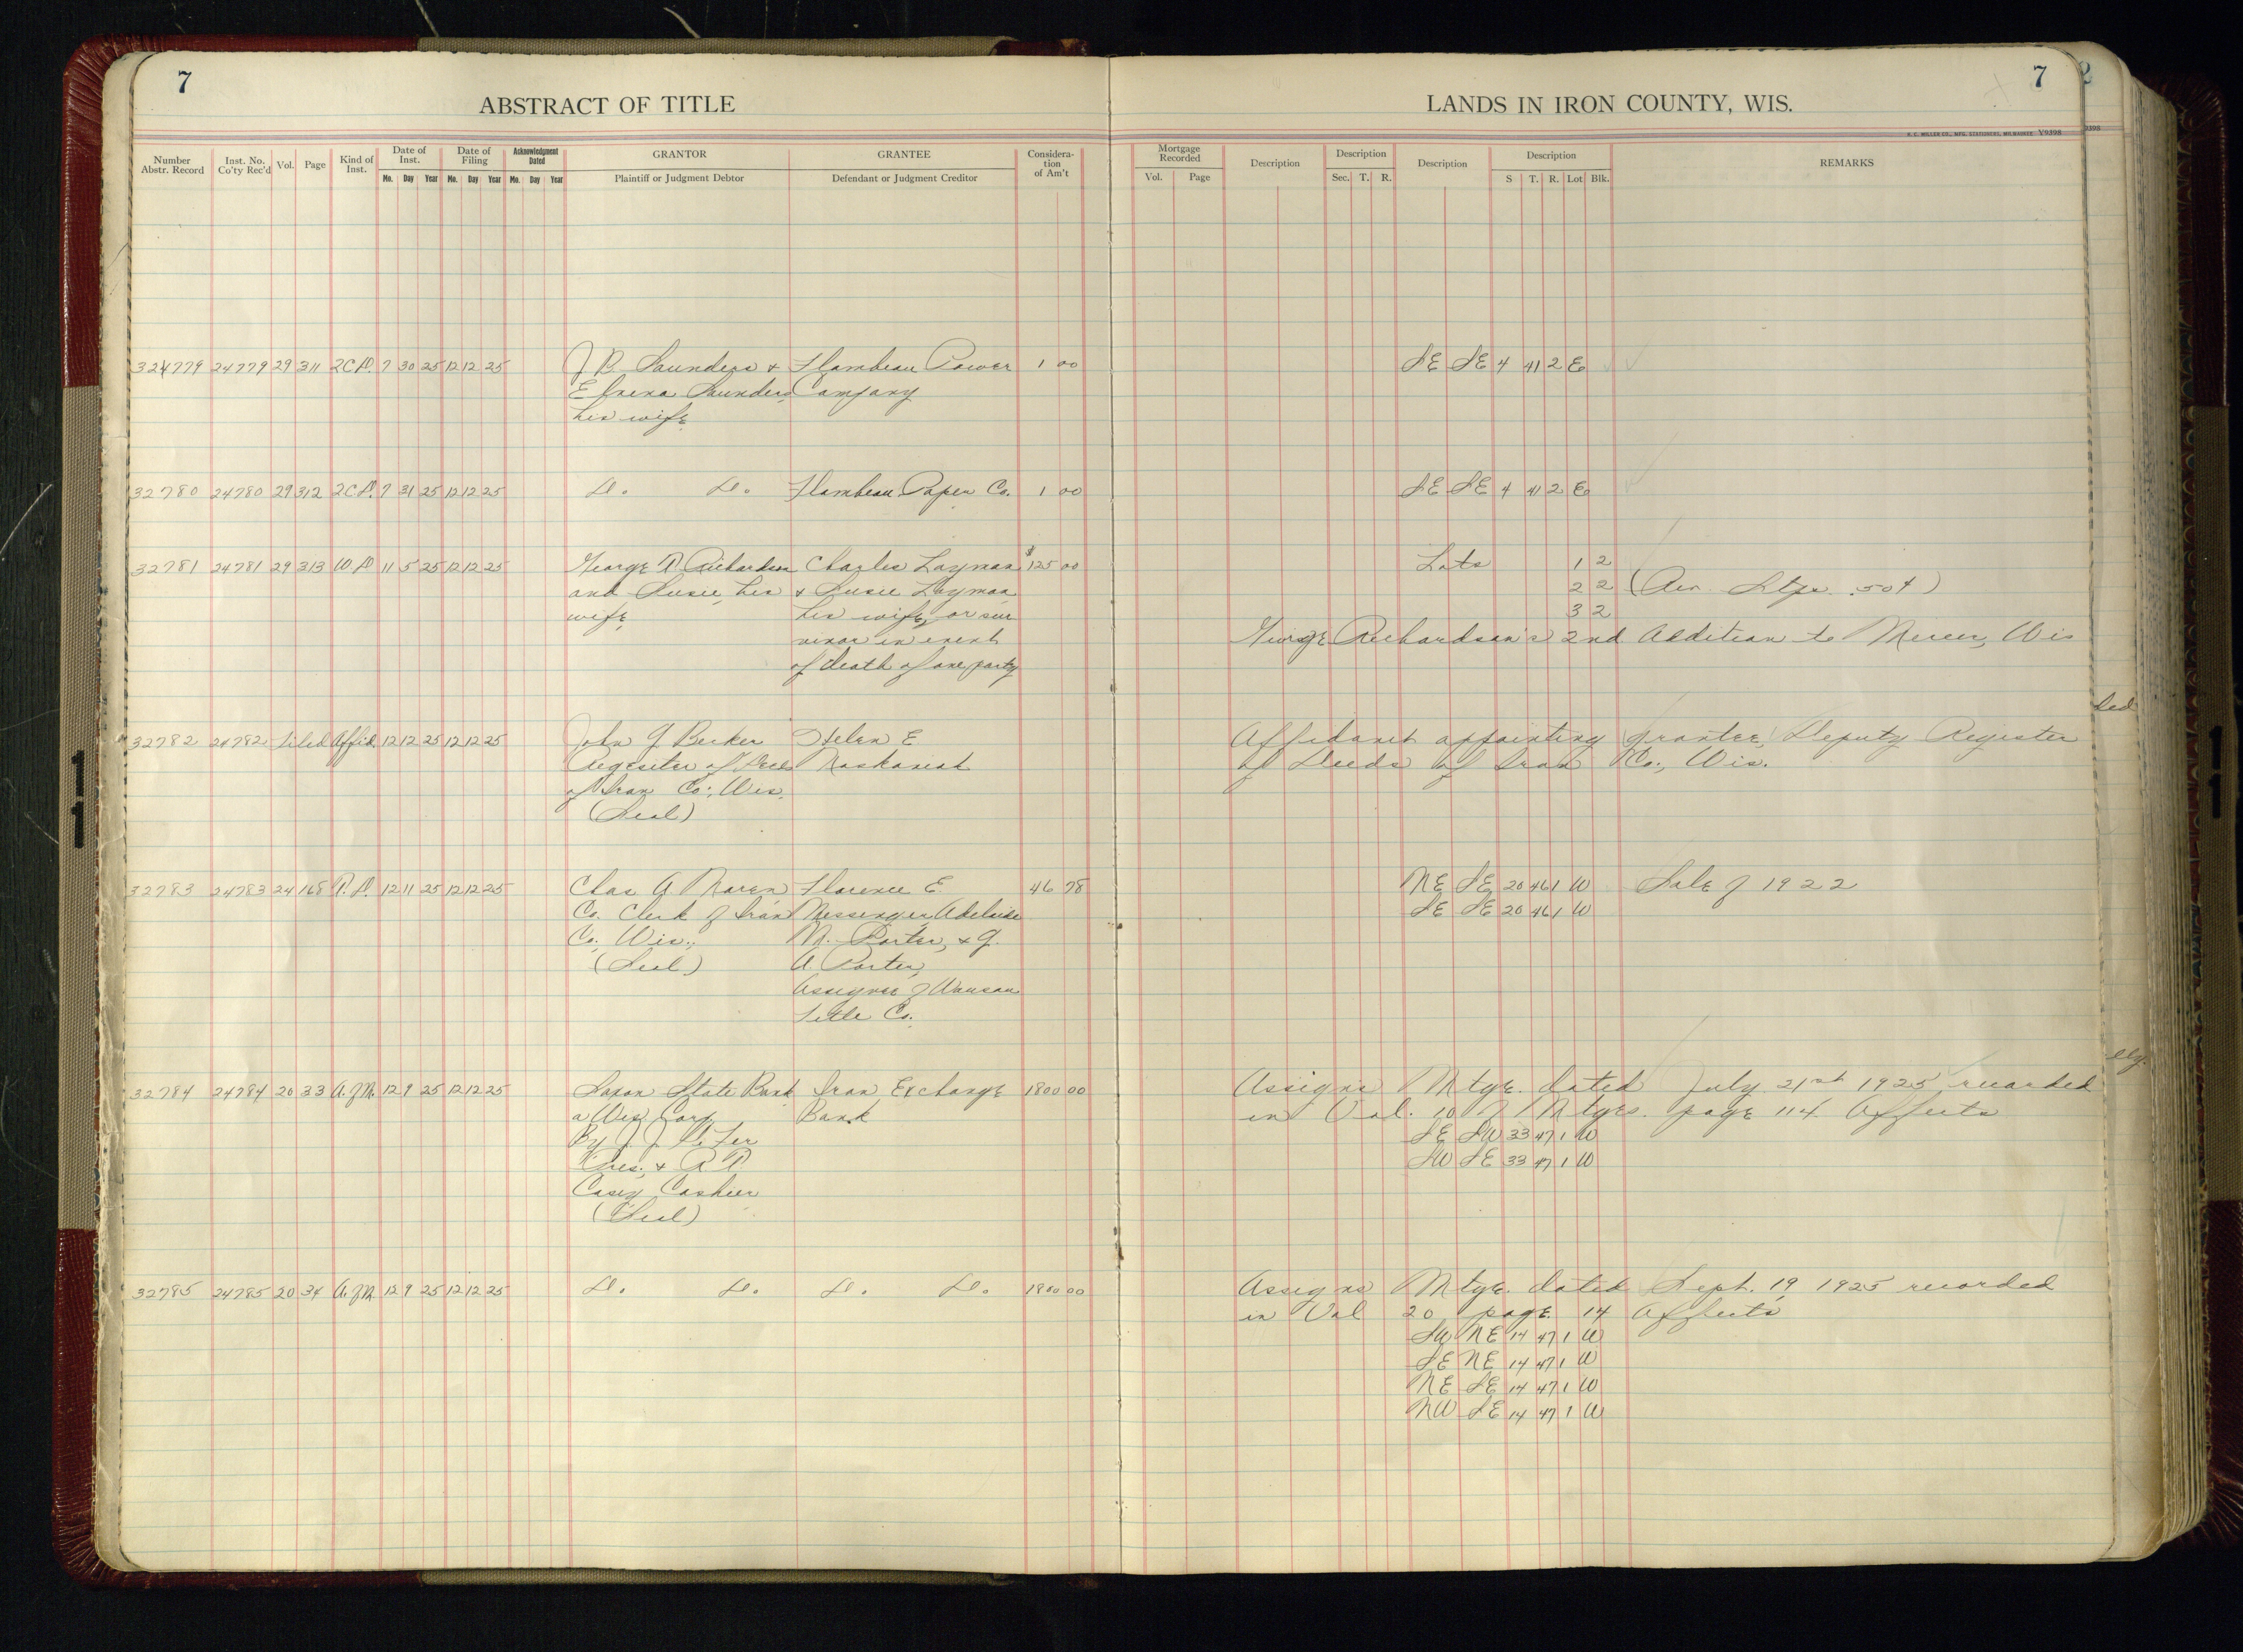 7
ABSTRACT OF TITLE
LANDS IN IRON COUNTY, WIS.
7
H. C. MILLER CO., MFG. STATIONERS, MILWAUKEE Y9398
Number Abstr. Record Inst. No. Co'ty Rec'd Vol. Page Kind of Inst. Date of Inst. Mo. Day Year Date of Filing Mo. Day Year Acknowledgment Dated Mo. Day Year GRANTOR Plaintiff or Judgment Debtor GRANTEE Defendant or Judgment Creditor Consideration of Am't
Mortgage Recorded Vol. Page Description Description Sec. T. R. Description Description S T. R. Lot Blk. REMARKS
324779 24779 29 311 2C.D. 7 30 25 12 12 25 J B Saunders & Flambeau Power 1 00 SE SE 4 41 2 E
Saunders, Company
his wife
32780 24780 29 312 2C.D. 7 31 25 12 12 25 Do. Do. Flambeau Paper Co. 1 00 SE SE 4 41 2 E
32781 24781 29 313 W.D. 11 5 25 12 12 25 George R. Richardson Charles Layman $125 00 Lots 1 2
and Susie, his & Susie Layman 2 2 (Rev. Stps .50¢)
wife, his wife, or sur 3 2
vivor in event George Richardson's 2nd Addition to Mercer, Wis
of death of one party
32782 24782 Filed Affid. 12 12 25 12 12 25 John G Becker Helen E Affidavit appointing grantee, Deputy Register
Regesiter of Deeds of Deeds of Iron Co., Wis.
of Iron Co., Wis.
(Seal)
32783 24783 24 168 T.D. 12 11 25 12 12 25 Chas A. Florence E. 46 78 NE SE 20 46 1 W Sale of 1922
Co. Clerk of Iron Messenger, Adelaide SE SE 20 46 1 W
Co., Wis., M. Porter, & G.
(Seal) A. Porter,
Assignee of Wausau
Title Co.
32784 24784 20 33 A.of M. 12 9 25 12 12 25 Saxon State Bank Iron Exchange 1800 00 Assigns Mtge. dated July 21st 1925 recorded
a Wis. Corp Bank in Vol. 10 of Mtges. page 114 Affects
By J. J. SE SW 33 47 1 W
Pres., & R. P. SW SE 33 47 1 W
Casey Cashier
(Seal)
32785 24785 20 34 A.of M 12 9 25 12 12 25 Do. Do. Do. Do. 1800 00 Assigns Mtge. dated Sept. 19, 1925 recorded
in Vol 20 page 14 Affects
SW NE 14 47 1 W
SE NE 14 47 1 W
NE SE 14 47 1 W
NW SE 14 47 1 W